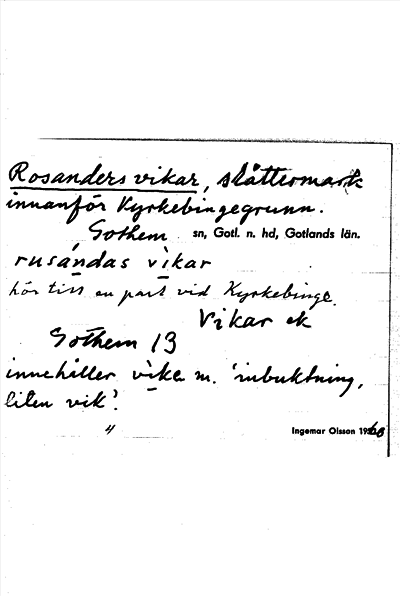 Rosanders vikar, slåttermark
innanför Kyrkebingegrunn.
Gothem sn, Gotl. n. hd, Gotlands län.
rusándas vìkar
hör till en part vid Kyrkebinge.
Vikar ek
Gothem 13
innehåller vìka m. 'inbuktning,
liten vik'.
4
Ingemar Olsson 19